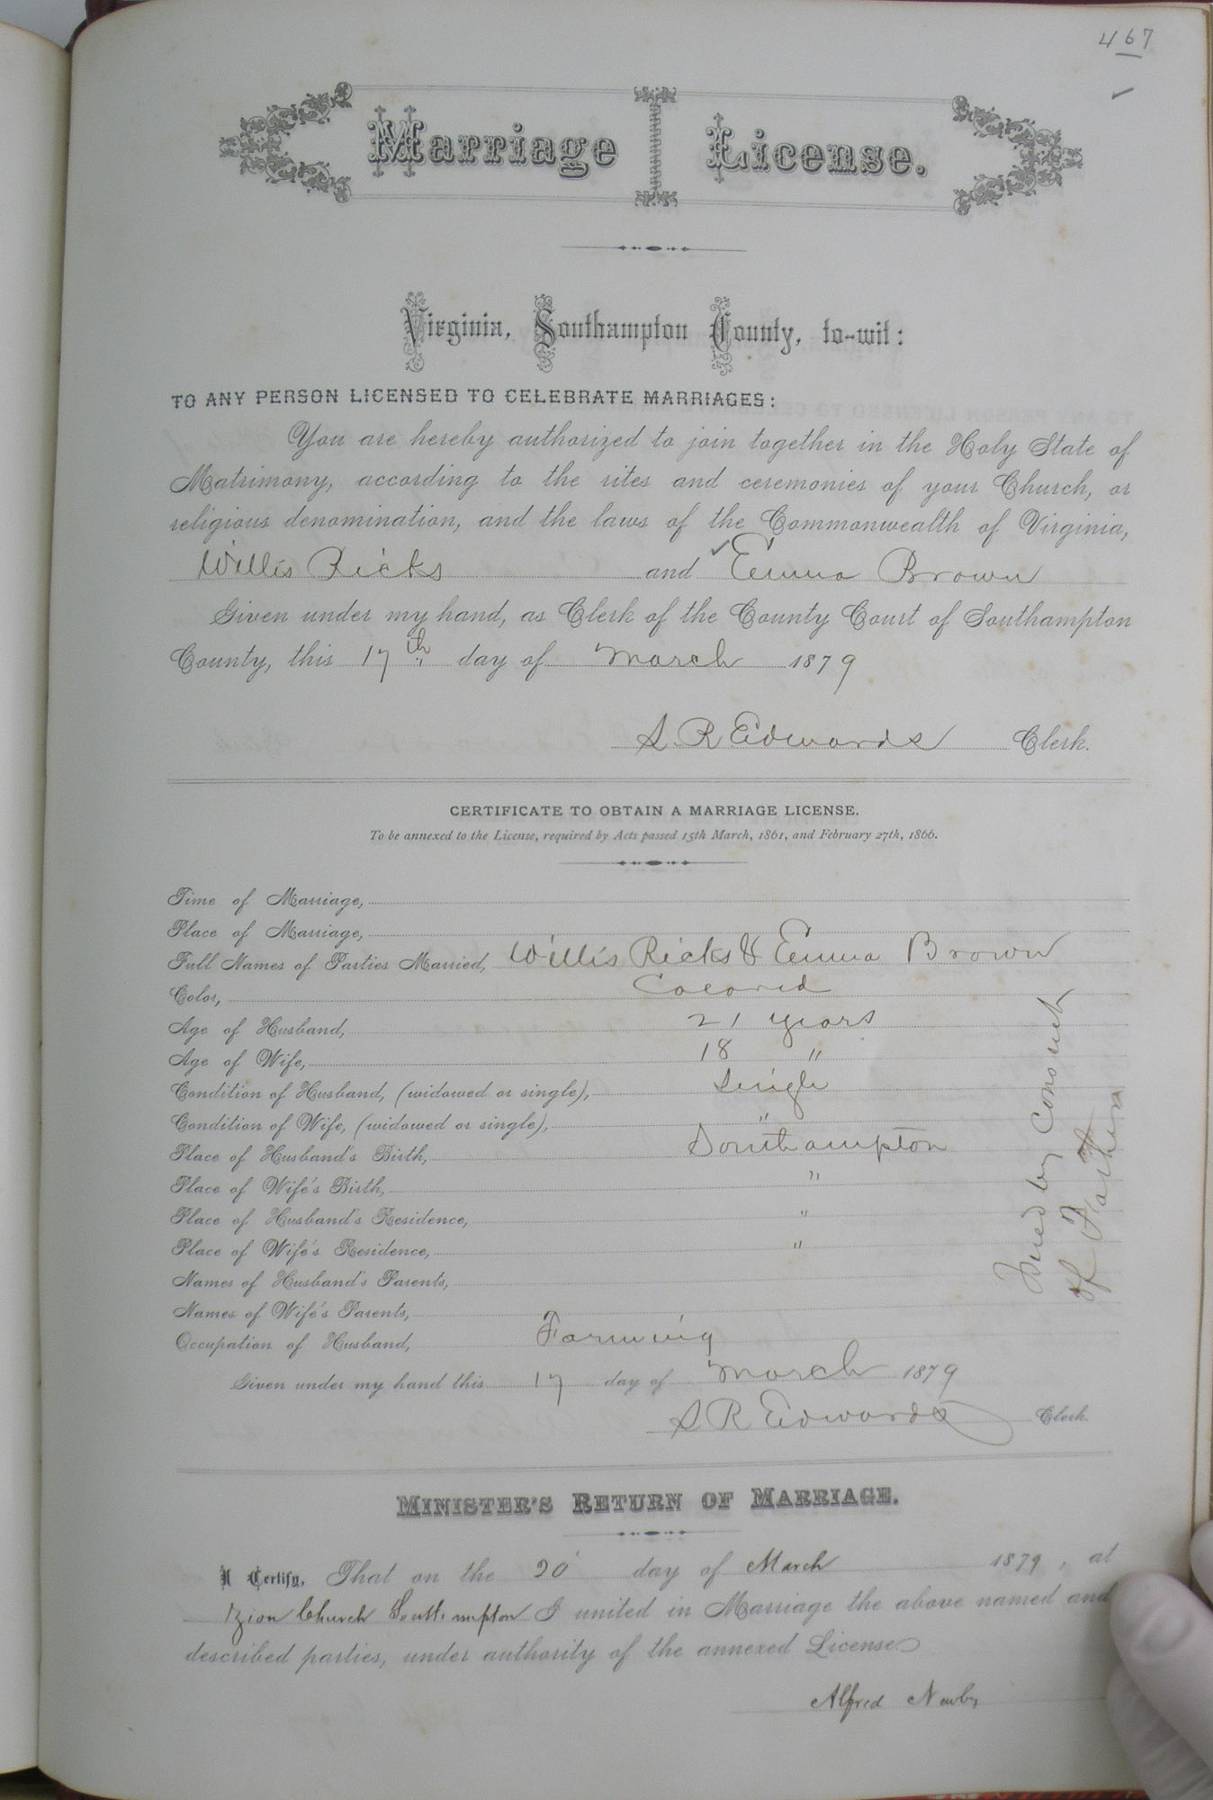 467
Marriage License.
Virginia, Southampton County, to-wit:
TO ANY PERSON LICENSED TO CELEBRATE MARRIAGES:
You are hereby authorized to join together in the Holy State of
Matrimony, according to the rites and ceremonies of your Church, or
religious denomination, and the laws of the Commonwealth of Virginia,
Willis Ricks and Emma Brown
Given under my hand, as Clerk of the County Court of Southampton
County, this 17th day of March 1879
S. R Edwards Clerk.
CERTIFICATE TO OBTAIN A MARRIAGE LICENSE.
To be annexed to the License, required by Acts passed 15th March, 1861, and February 27th, 1866.
Time of Marriage,
Place of Marriage,
Full Names of Parties Married, Willis Ricks & Emma Brown
Color, Colored
Age of Husband, 21 years
Age of Wife, 18 "
Condition of Husband, (widowed or single), Single
Condition of Wife, (widowed or single), "
Place of Husband's Birth, Southampton
Place of Wife's Birth, "
Place of Husband's Residence, "
Place of Wife's Residence, "
Names of Husband's Parents,
Names of Wife's Parents,
Occupation of Husband, Farming
Given under my hand this 17 day of March 1879
S R Edwards Clerk.
by consent
of Father
MINISTER'S RETURN OF MARRIAGE.
I Certify, That on the 20 day of March 1879, at
Zion Church Southampton I united in Marriage the above named and
described parties, under authority of the annexed License
Alfred Newby